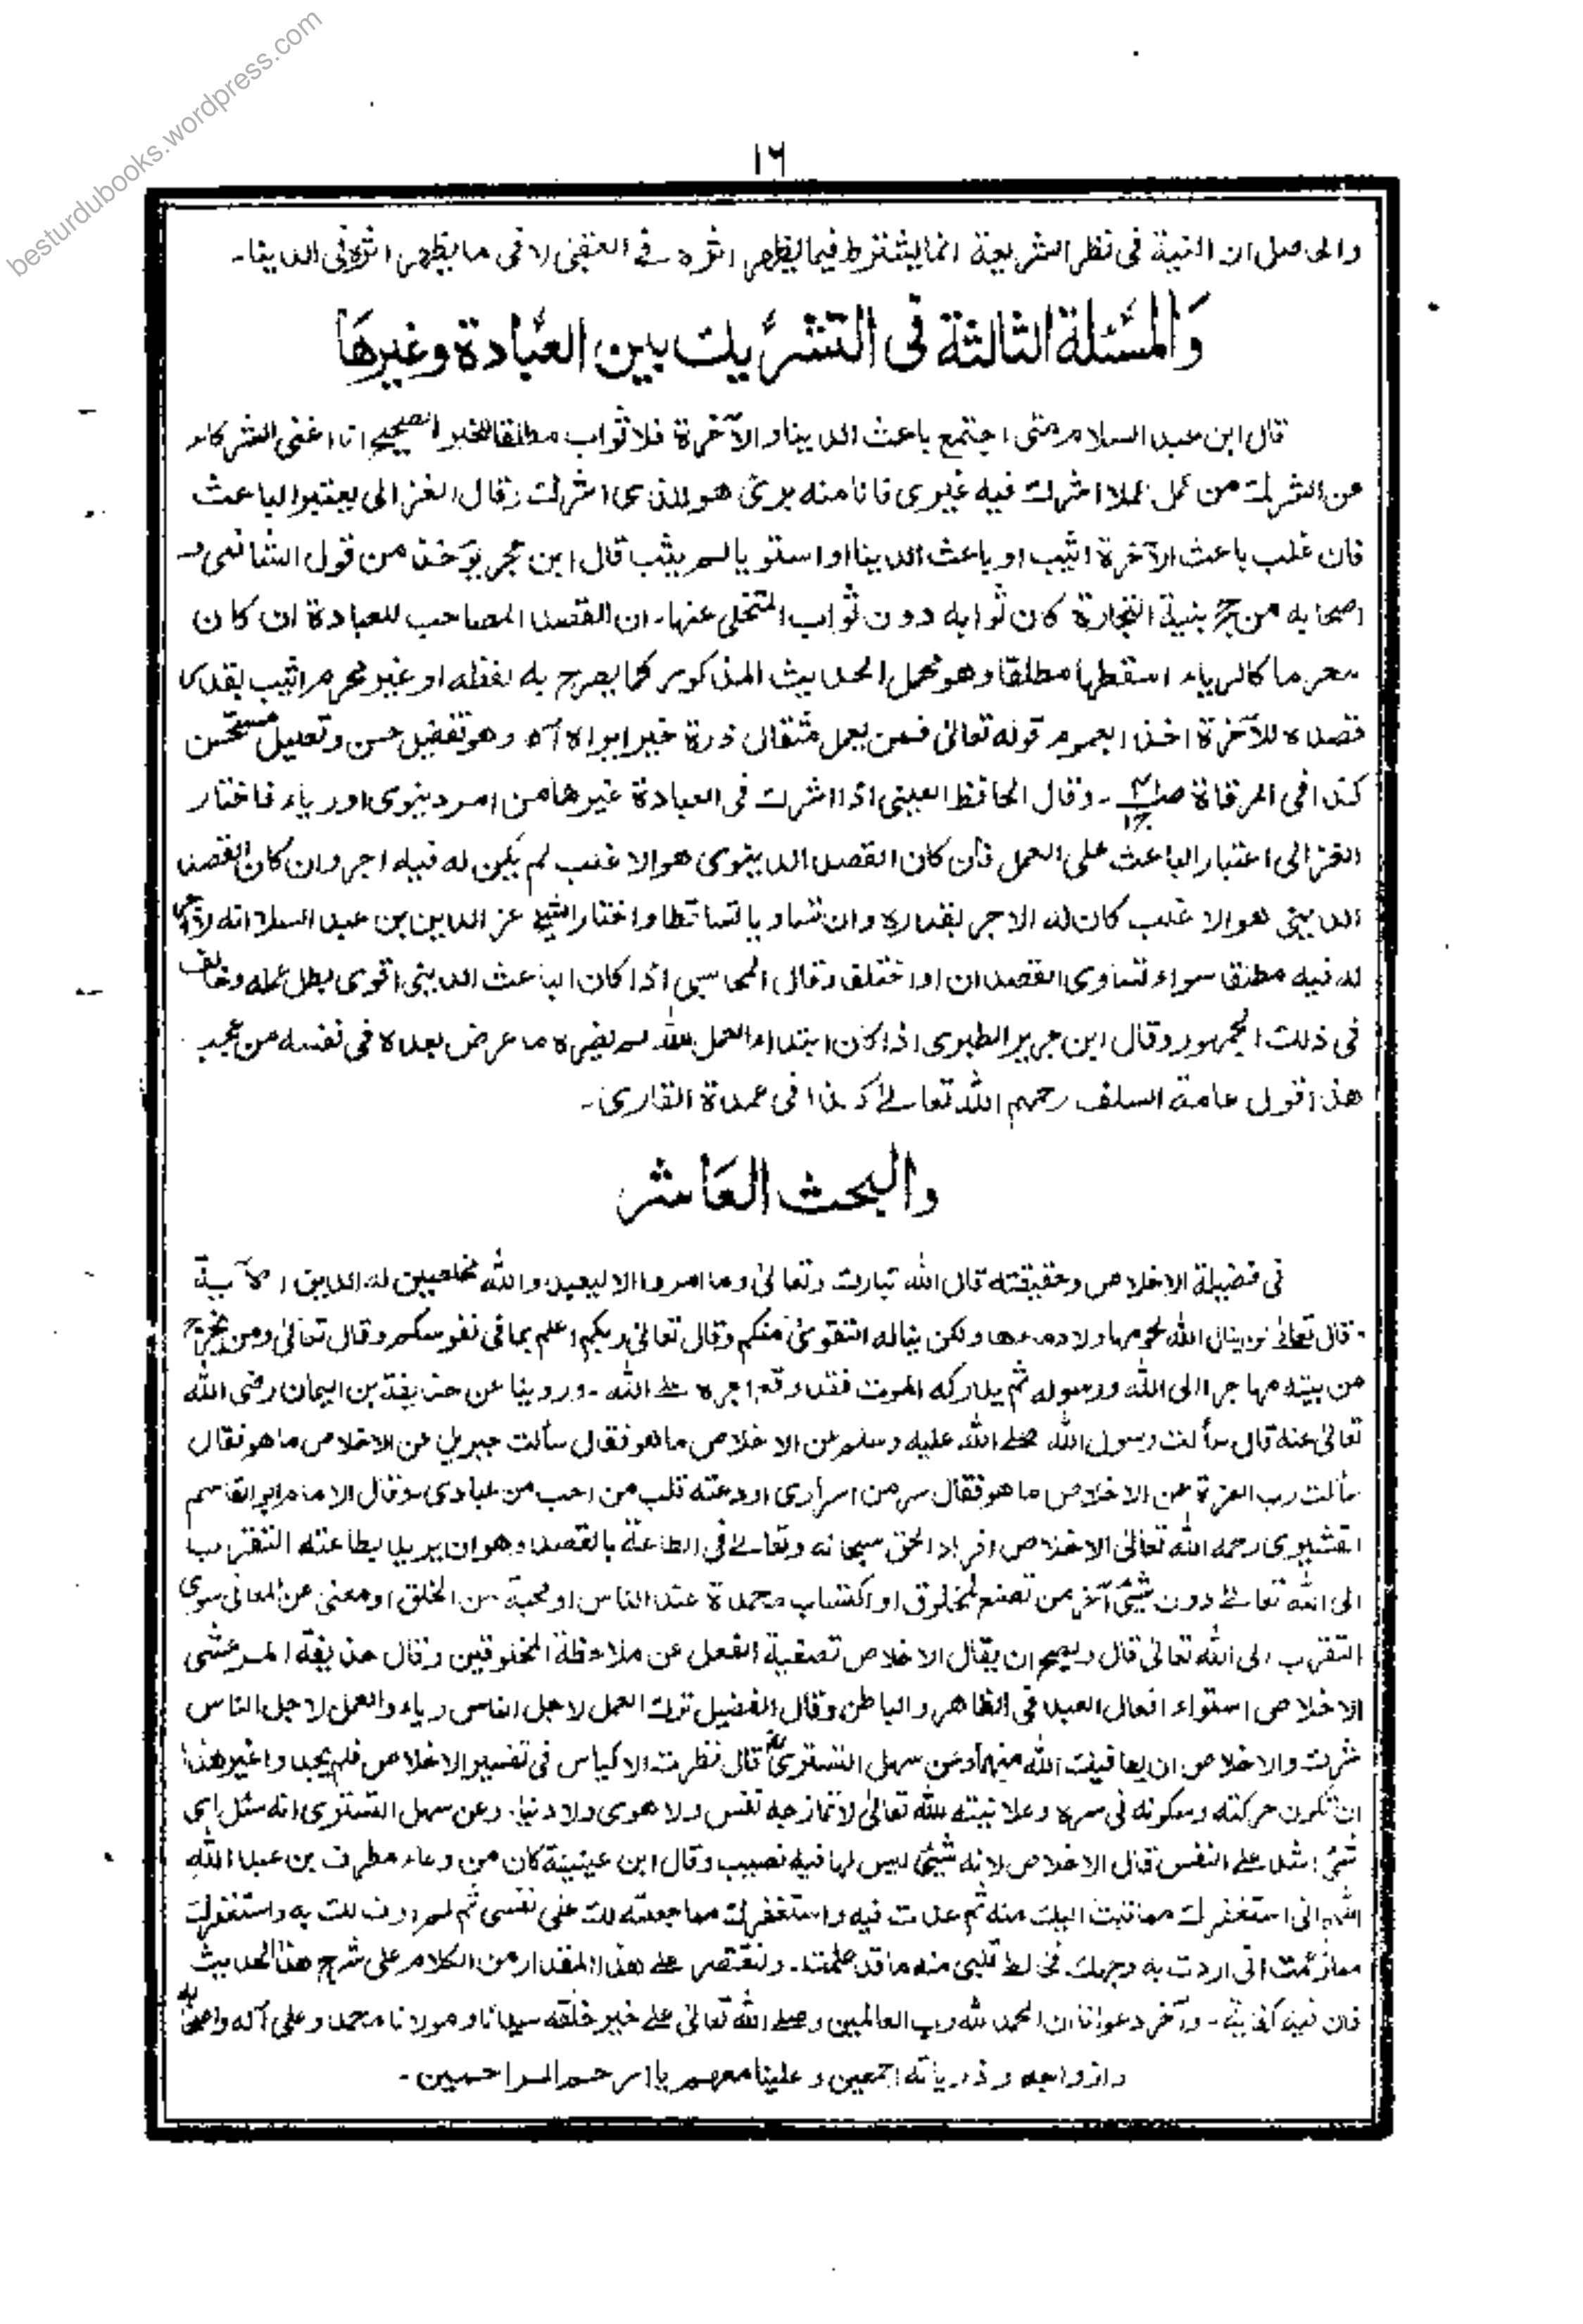 besturdubooks.wordpress.com
١٦
والحاصل ان النية فى نظر الشريعة انما يشترط فيما يظهر اثره فى العقبى لا فى ما يظهر اثره فى الدينا۔
وَالمَسْئلة الثالثة فى التشريك بين العبادة وغيرها
قال ابن عبد السلام متى اجتمع باعث الدينا والآخرة فلا ثواب مطلقا للخبر الصحيح انا اغنى الشركاء
عن الشرك من عمل عملا اشرك فيه غيرى فانا منه برئ هو للذى اشرك وقال الغزالى يعتبر الباعث
فان غلب باعث الآخرة اثيب او باعث الدينا او استويا لم يثب قال ابن حجر يؤخذ من قول الشافعى و
اصحابه من حج بنية التجارة كان ثوابه دون ثواب المتخلى عنها۔ ان القصد المصاحب للعبادة ان كان
محرما كالرياء اسقطها مطلقا وهو محمل الحديث المذكور كما يصرح به لفظه او غير محرم اثيب بقدر
قصده للآخرة اخذا بعموم قوله تعالى فمن يعمل مثقال ذرة خيرا يره اه وهو تفصيل حسن وتعليل مستحسن
كذا فى المرقاة ۔ وقال الحافظ العينى اذا اشرك فى العبادة غيرها من امر دينوى او رياء فاختار
الغزالى اعتبار الباعث على العمل فان كان القصد الدينوى هو الاغلب لم يكن له فيه اجر وان كان القصد
الدينى هو الاغلب كان له الاجر بقدره وان تساويا تساقطا واختار الشيخ عز الدين بن عبد السلام انه لا اجر
له فيه مطلقا سواء تساوى القصدان او اختلفا وقال المحاسبى اذا كان الباعث الدينى اقوى بطل عمله وخالف
فى ذلك الجمهور وقال ابن جرير الطبرى اذا كان ابتداء العمل لله لم يضره ما عرض بعده فى نفسه من عجب
هذا قول عامة السلف رحمهم الله تعالى كذا فى عمدة القارى۔
والبحث العَاشر
فى فضيلة الاخلاص وحقيقته قال الله تبارك وتعالى وما امروا الا ليعبدوا الله مخلصين له الدين الآية
وقال تعالى لن ينال الله لحومها ولا دماءها ولكن يناله التقوى منكم وقال تعالى ربكم اعلم بما فى نفوسكم وقال تعالى ومن يخرج
من بيته مهاجرا الى الله ورسوله ثم يدركه الموت فقد وقع اجره على الله ۔ وروينا عن حذيفة بن اليمان رضى الله
تعالى عنه قال سألت رسول الله صلى الله عليه وسلم عن الاخلاص ما هو فقال سألت جبريل عن الاخلاص ما هو فقال
سألت رب العزة عن الاخلاص ما هو فقال سر من اسرارى اودعته قلب من احب من عبادى۔ وقال الامام ابو القاسم
القشيرى رحمه الله تعالى الاخلاص افراد الحق سبحانه وتعالى فى الطاعة بالقصد وهو ان يريد بطاعته التقرب
الى الله تعالى دون شيئى آخر من تصنع لمخلوق او اكتساب محمدة عند الناس او محبة من الخلق او معنى عن المعانى سوى
التقرب الى الله تعالى قال ويصح ان يقال الاخلاص تصفية الفعل عن ملاحظة المخلوقين وقال حذيفة المرعشى
الاخلاص استواء افعال العبد فى الظاهر والباطن وقال الفضيل ترك العمل لاجل الناس رياء والعمل لاجل الناس
شرك والاخلاص ان يعافيك الله منهما وعن سهل التسترى قال نظرت الاكياس فى تفسير الاخلاص فلم يجدوا غير هذا
ان تكون حركته وسكونه فى سره وعلانيته لله تعالى لا تمازجه نفس ولا هوى ولا دنيا۔ وعن سهل التسترى انه سئل اى
شئ اشد على النفس قال الاخلاص لانه شيئى ليس لها فيه نصيب وقال ابن عيينة كان من دعاء مطرف بن عبد الله
اللهم انى استغفرك مما تبت اليك منه ثم عدت فيه واستغفرك مما جعلته لك على نفسى ثم لم اوف لك به واستغفرك
مما زعمت انى اردت به وجهك فخالط قلبى منه ما قد علمت۔ ولنقتصر على هذا المقدار من الكلام على شرح هذا الحديث
فان فيه كفاية ۔ وآخر دعوانا ان الحمد لله رب العالمين وصلى الله تعالى على خير خلقه سيدنا ومولانا محمد وعلى آله واصحابه
وازواجه وذرياته اجمعين وعلينا معهم يا ارحم الراحمين۔